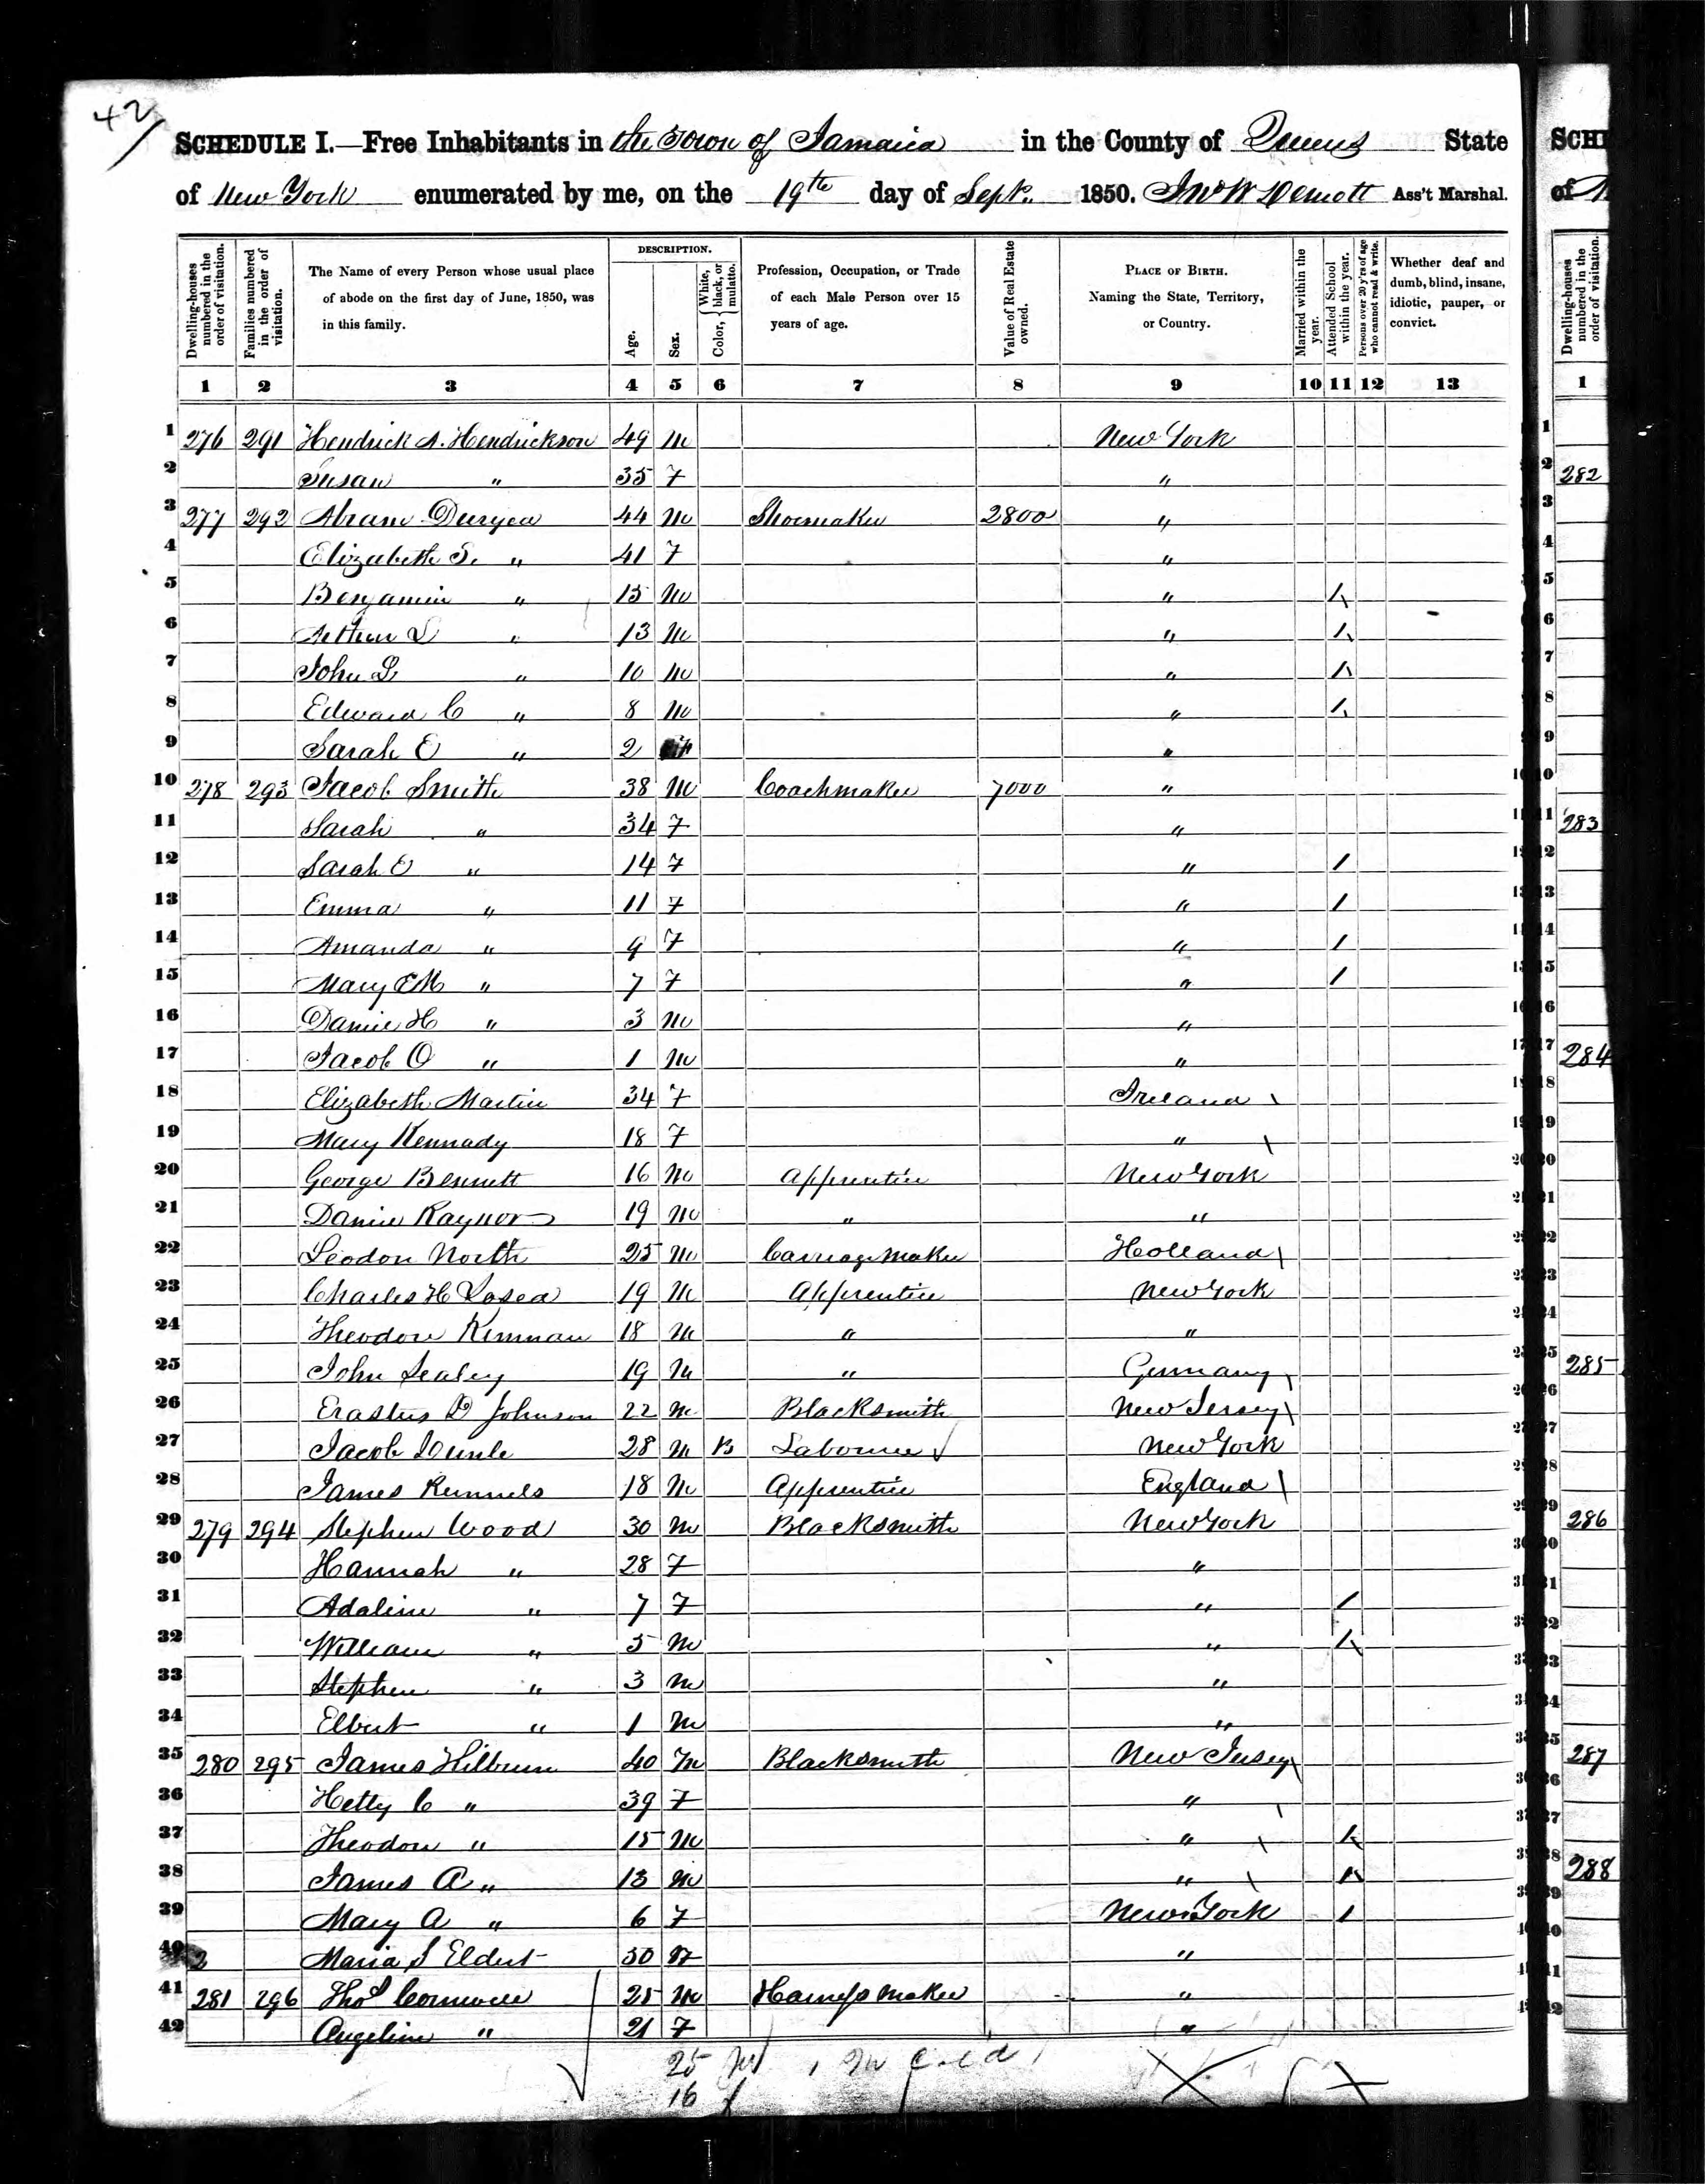 42
SCHEDULE I.—Free Inhabitants in the Town of Jamaica in the County of Queens State
of New York enumerated by me, on the 19th day of Sept. 1850. Jno W Demott Ass't Marshal.
Dwelling-houses numbered in the order of visitation.
Families numbered in the order of visitation.
The Name of every Person whose usual place of abode on the first day of June, 1850, was in this family.
DESCRIPTION.
Age.
Sex.
Color, { White, black, or mulatto.
Profession, Occupation, or Trade of each Male Person over 15 years of age.
Value of Real Estate owned.
PLACE OF BIRTH. Naming the State, Territory, or Country.
Married within the year.
Attended School within the year.
Persons over 20 y'rs of age who cannot read & write.
Whether deaf and dumb, blind, insane, idiotic, pauper, or convict.
1 2 3 4 5 6 7 8 9 10 11 12 13
1 276 291 Hendrick A. Hendrickson 49 M New York
2 Susan " 35 F "
3 277 292 Abram Duryea 44 M Shoemaker 2800 "
4 Elizabeth S. " 41 F "
5 Benjamin " 15 M " /
6 Arthur D " 13 M " /
7 John L " 10 M " /
8 Edward C " 8 M " /
9 Sarah E " 2 F "
10 278 293 Jacob Smith 38 M Coachmaker 7000 "
11 Sarah " 34 F "
12 Sarah E " 14 F " /
13 Emma " 11 F " /
14 Amanda " 9 F " /
15 Mary E M " 7 F " /
16 Daniel H " 3 M "
17 Jacob O " 1 M "
18 Elizabeth Martin 34 F Ireland \
19 Mary Kennady 18 F " \
20 George Bennett 16 M Apprentice New York
21 Daniel Raynor 19 M " "
22 Leodon North 25 M Carriage Maker Holland \
23 Charles H Losea 19 M Apprentice New York
24 Theodore Remman 18 M " "
25 John Sealey 19 M " Germany \
26 Erastus D Johnson 22 M Blacksmith New Jersey \
27 Jacob 28 M B Labourer New York
28 James Runnels 18 M Apprentice England \
29 279 294 Stephen Wood 30 M Blacksmith New York
30 Hannah " 28 F "
31 Adaline " 7 F " /
32 William " 5 M " /
33 Stephen " 3 M "
34 Elbert " 1 M "
35 280 295 James Hilbun 40 M Blacksmith New Jersey \
36 Hetty C " 39 F " \
37 Theodore " 15 M " \ /
38 James A " 13 M " \ /
39 Mary A " 6 F New York /
40 Maria S Eldert 30 F "
41 281 296 Thos Cornwell 25 M Harness Maker "
42 Angeline " 21 F "
25 M 1 M Cold
16 f
SCHE
of N
Dwelling-houses numbered in the order of visitation.
1
282
283
284
285
286
287
288